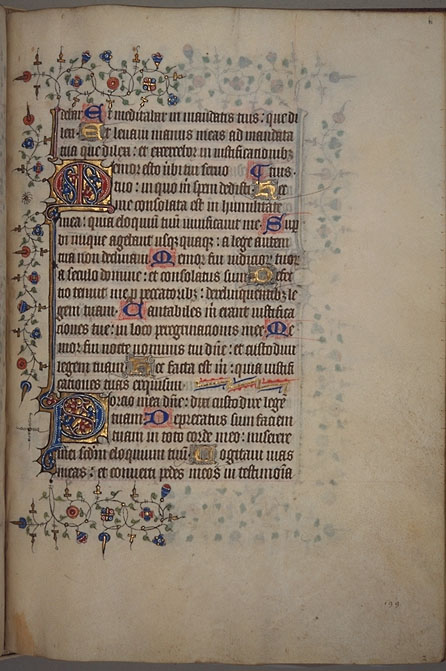 debar Et meditabar in mandatis tuis: que di
lexi. Et levavi manus meas ad mandata
tua que dilexi: et exercebor in iustificationibz
Memor esto vbi tui servo tuis.
tuo: in quo m spem dedisti. Hec
me consolata est in humilitate
mea: quia eloquiu tuu vivificavit me. Sup
bi inique agebant usqz quaqz: a lege autem
tua non declinavi. Memor fui iudicior tuor
a seculo domine: et consolatus sum. Defec
tio tenuit me p peccatoribz: derelinquentibz le
gem tuam. Cantabiles m erant iustifica
ciones tue: in loco peregrinacionis mee. Me
mor fui nocte nominis tui dne: et custodivi
legem tuam. Hec facta est m: quia iustifi
cationes tuas exquisivi.
Porcio mea dne: dixi custodire lege
tuam. Deprecatus sum faciem
tuam in toto corde meo: miserere
mei scdm eloquium tuu. Cogitavi vias
meas: et converti pedes meos in testimonia
199